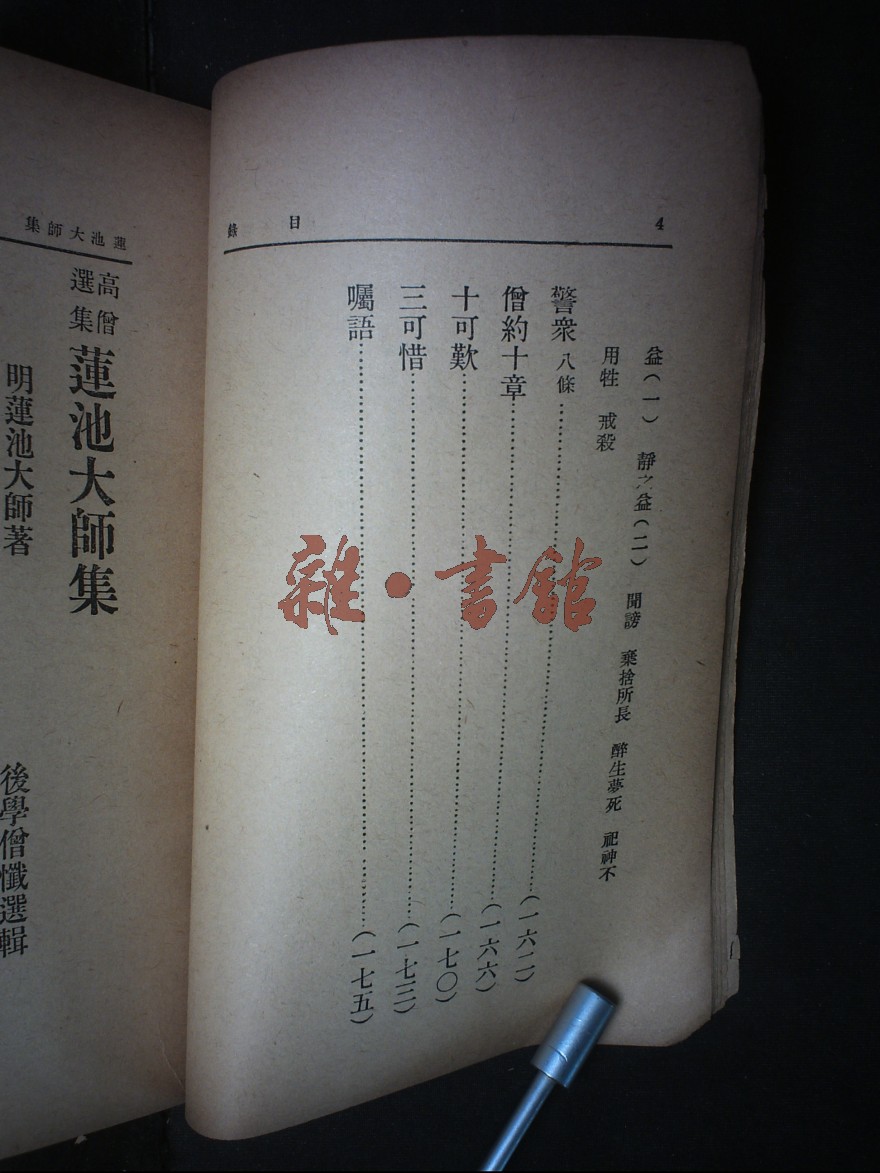 4
目錄
益（一） 靜之益（二） 聞謗 棄捨所長 醉生夢死 祀神不
用牲 戒殺
警眾 八條……（一六二）
僧約十章……（一六六）
十可歎……（一七〇）
三可惜……（一七三）
囑語……（一七五）
蓮池大師集
高僧選集 蓮池大師集
明蓮池大師著
後學僧懺選輯
雜·書館